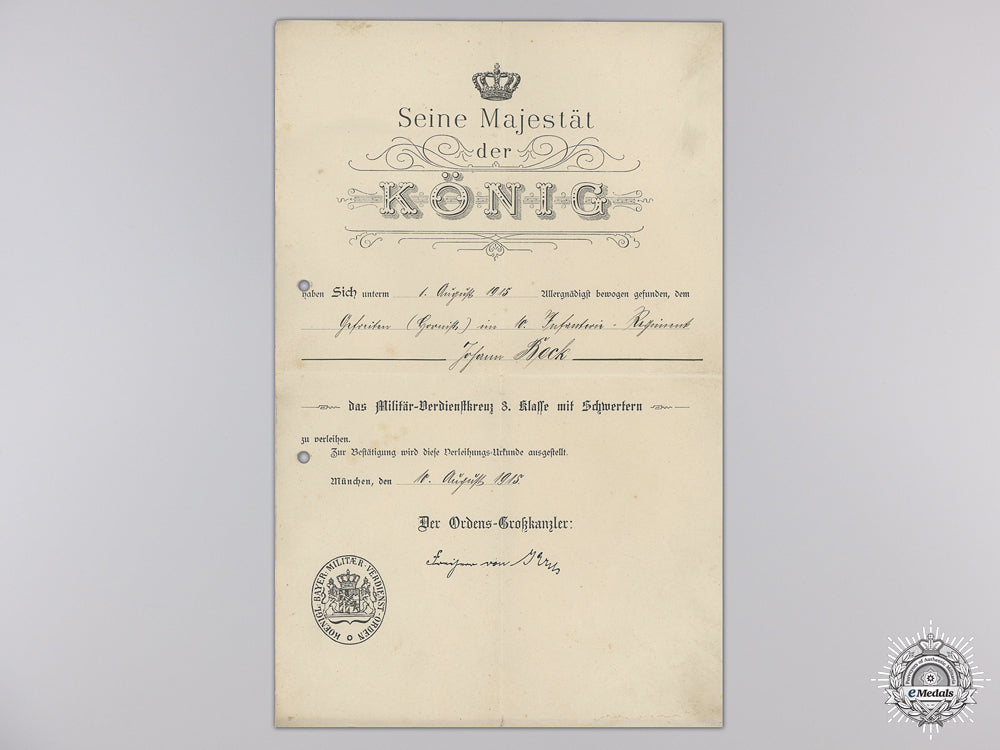 Seine Majestät
der
KÖNIG
haben Sich unterm 1. August 1915 Allergnädigst bewogen gefunden, dem
Gefreiten (Hornist) im 10. Infanterie-Regiment
Johann Beck
das Militär-Verdienstkreuz 3. Klasse mit Schwertern
zu verleihen.
Zur Bestätigung wird diese Verleihungs-Urkunde ausgestellt.
München, den 10. August 1915.
Der Ordens-Großkanzler:
Freiherr von
KOENIGL. BAYER. MILITÆR-VERDIENST-ORDEN
eMedals